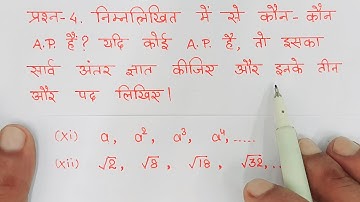 प्रश्न-4. निम्नलिखित में से कौन-कौन
A.P. हैं? यदि कोई A.P. है, तो इसका
सार्व अंतर ज्ञात कीजिए और इनके तीन
और पद लिखिए।
(xi) a, a², a³, a⁴, .....
(xii) √2, √8, √18, √32, ..